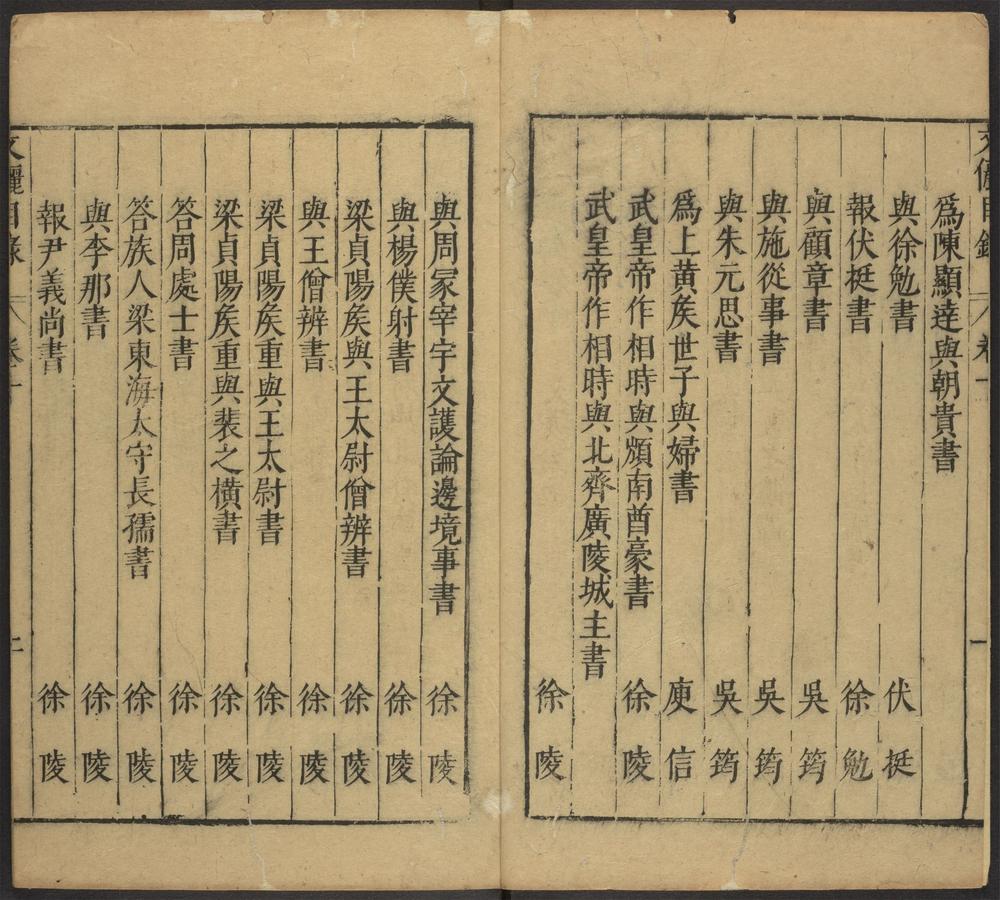 爲陳顯達與朝貴書
與徐勉書 伏挺
報伏挺書 徐勉
與顧章書 吳筠
與施從事書 吳筠
與朱元思書 吳筠
爲上黃矦世子與婦書 庾信
武皇帝作相時與頒南酋豪書 徐陵
武皇帝作相時與北齊廣陵城主書
徐陵
與周冢宰宇文護論邊境事書 徐陵
與楊僕射書 徐陵
梁貞陽矦與王太尉僧辨書 徐陵
與王僧辨書 徐陵
梁貞陽矦重與王太尉書 徐陵
梁貞陽矦重與裴之橫書 徐陵
答周處士書 徐陵
答族人梁東海太守長孺書 徐陵
與李那書 徐陵
報尹義尚書 徐陵